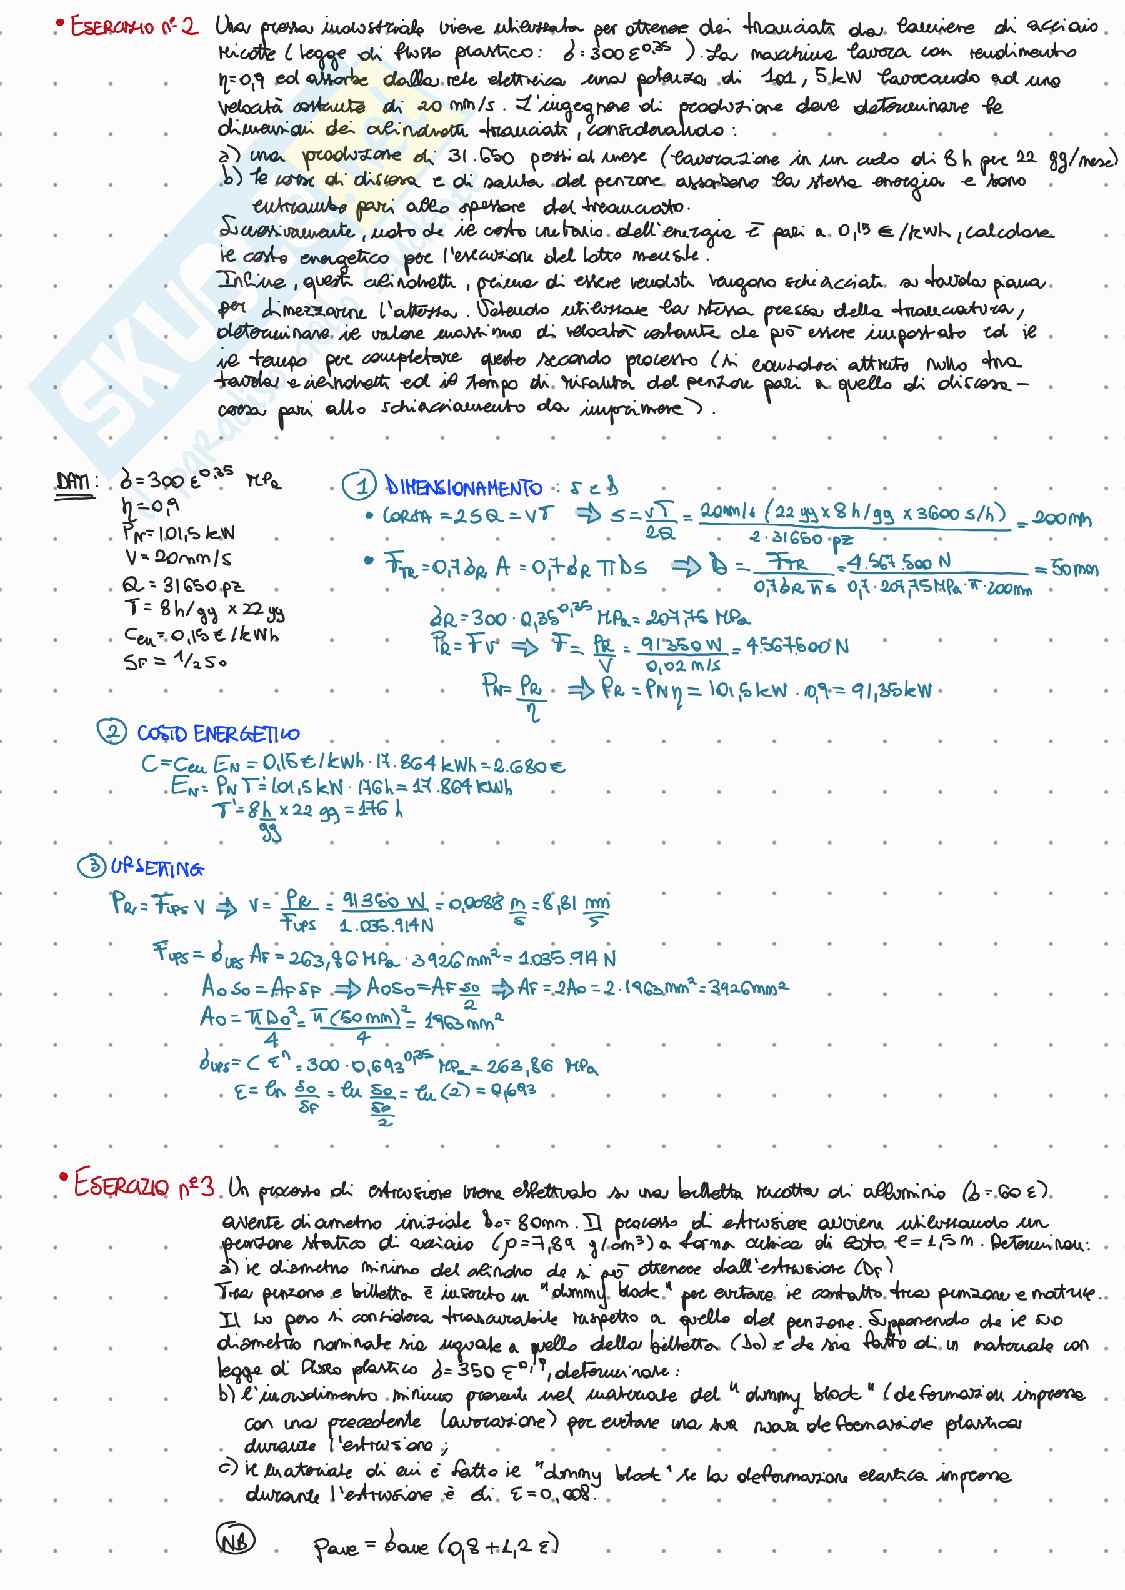 • ESERCIZIO n° 2 Una pressa industriale viene utilizzata per ottenere dei tranciati da lamiere di acciaio
ricotte (legge di flusso plastico: σ=300 ε^0,35). La macchina lavora con rendimento
η=0,9 ed assorbe dalla rete elettrica una potenza di 101,5 kW lavorando ad una
velocità costante di 20 mm/s. L'ingegnere di produzione deve determinare le
dimensioni dei cilindretti tranciati, considerando:
a) una produzione di 31.650 pezzi al mese (lavorazione in un ciclo di 8h per 22 gg/mese)
b) le corse di discesa e di salita del punzone assorbono la stessa energia e sono
entrambe pari allo spessore del tranciato.
Successivamente, noto che il costo unitario dell'energia è pari a 0,15 €/kWh, calcolare
il costo energetico per l'esecuzione del lotto mensile.
Infine, questi cilindretti, prima di essere venduti vengono schiacciati a tavola piana
per dimezzarne l'altezza. Volendo utilizzare la stessa pressa della tranciatura,
determinare il valore massimo di velocità costante che può essere impostato ed il
il tempo per completare questo secondo processo (si consideri attrito nullo tra
tavola e cilindretti ed il tempo di risalita del punzone pari a quello di discesa -
corsa pari allo schiacciamento da imprimere).
DATI: σ=300 ε^0,35 MPa
η=0,9
PN=101,5 kW
V=20mm/s
Q=31650 pz
T=8h/gg x 22 gg
Cen=0,15 €/kWh
SF = 1/2 S0
① DIMENSIONAMENTO: s e D
• CORSA = 2SQ = VT ⇒ S = VT/2Q = 20mm/s (22 gg x 8 h/gg x 3600 s/h)/2·31650 pz = 200mm
• FTR=0,7σR A = 0,7σR π D s ⇒ D = FTR/0,7σR π s = 4.567.500 N/0,7·207,75 MPa·π·200mm = 50mm
σR=300·0,35^0,35 MPa=207,75 MPa
PR=FV ⇒ F = PR/V = 91350 W/0,02 m/s = 4567500 N
PN = PR/η ⇒ PR = PN η = 101,5 kW · 0,9 = 91,35 kW
② COSTO ENERGETICO
C = Cen EN = 0,15 €/kWh · 17.864 kWh = 2.680 €
EN = PN T' = 101,5 kW · 176 h = 17.864 kWh
T' = 8h/gg x 22 gg = 176 h
③ UPSETTING
PR = FUPS V ⇒ V = PR/FUPS = 91350 W/1.035.914 N = 0,0088 m/s = 8,81 mm/s
FUPS = σUPS AF = 263,86 MPa · 3926 mm² = 1.035.914 N
A0S0 = AFSF ⇒ A0S0 = AF S0/2 ⇒ AF = 2A0 = 2·1963 mm² = 3926 mm²
A0 = πD0²/4 = π(50mm)²/4 = 1963 mm²
σUPS = C ε^n = 300·0,693^0,35 MPa = 263,86 MPa
ε = ln S0/SF = ln S0/(S0/2) = ln(2) = 0,693
• ESERCIZIO n° 3. Un processo di estrusione viene effettuato su una billetta ricotta di alluminio (σ=60 ε)
avente diametro iniziale D0=80mm. Il processo di estrusione avviene utilizzando un
punzone statico di acciaio (ρ=7,89 g/cm³) a forma cubica di lato l=1,5m. Determinare:
a) il diametro minimo del cilindro che si può ottenere dall'estrusione (DF)
Tra punzone e billetta è inserito un "dummy block" per evitare il contatto tra punzone e matrice.
Il suo peso si considera trascurabile rispetto a quello del punzone. Supponendo che il suo
diametro nominale sia uguale a quello della billetta (D0) e che sia fatto di un materiale con
legge di flusso plastico σ=350 ε^0,19, determinare:
b) l'incrudimento minimo presente nel materiale del "dummy block" (deformazioni impresse
con una precedente lavorazione) per evitare una sua nuova deformazione plastica
durante l'estrusione;
c) il materiale di cui è fatto il "dummy block" se la deformazione elastica impressa
durante l'estrusione è di ε=0,008.
NB Pave = σave (0,8 + 1,2 ε)